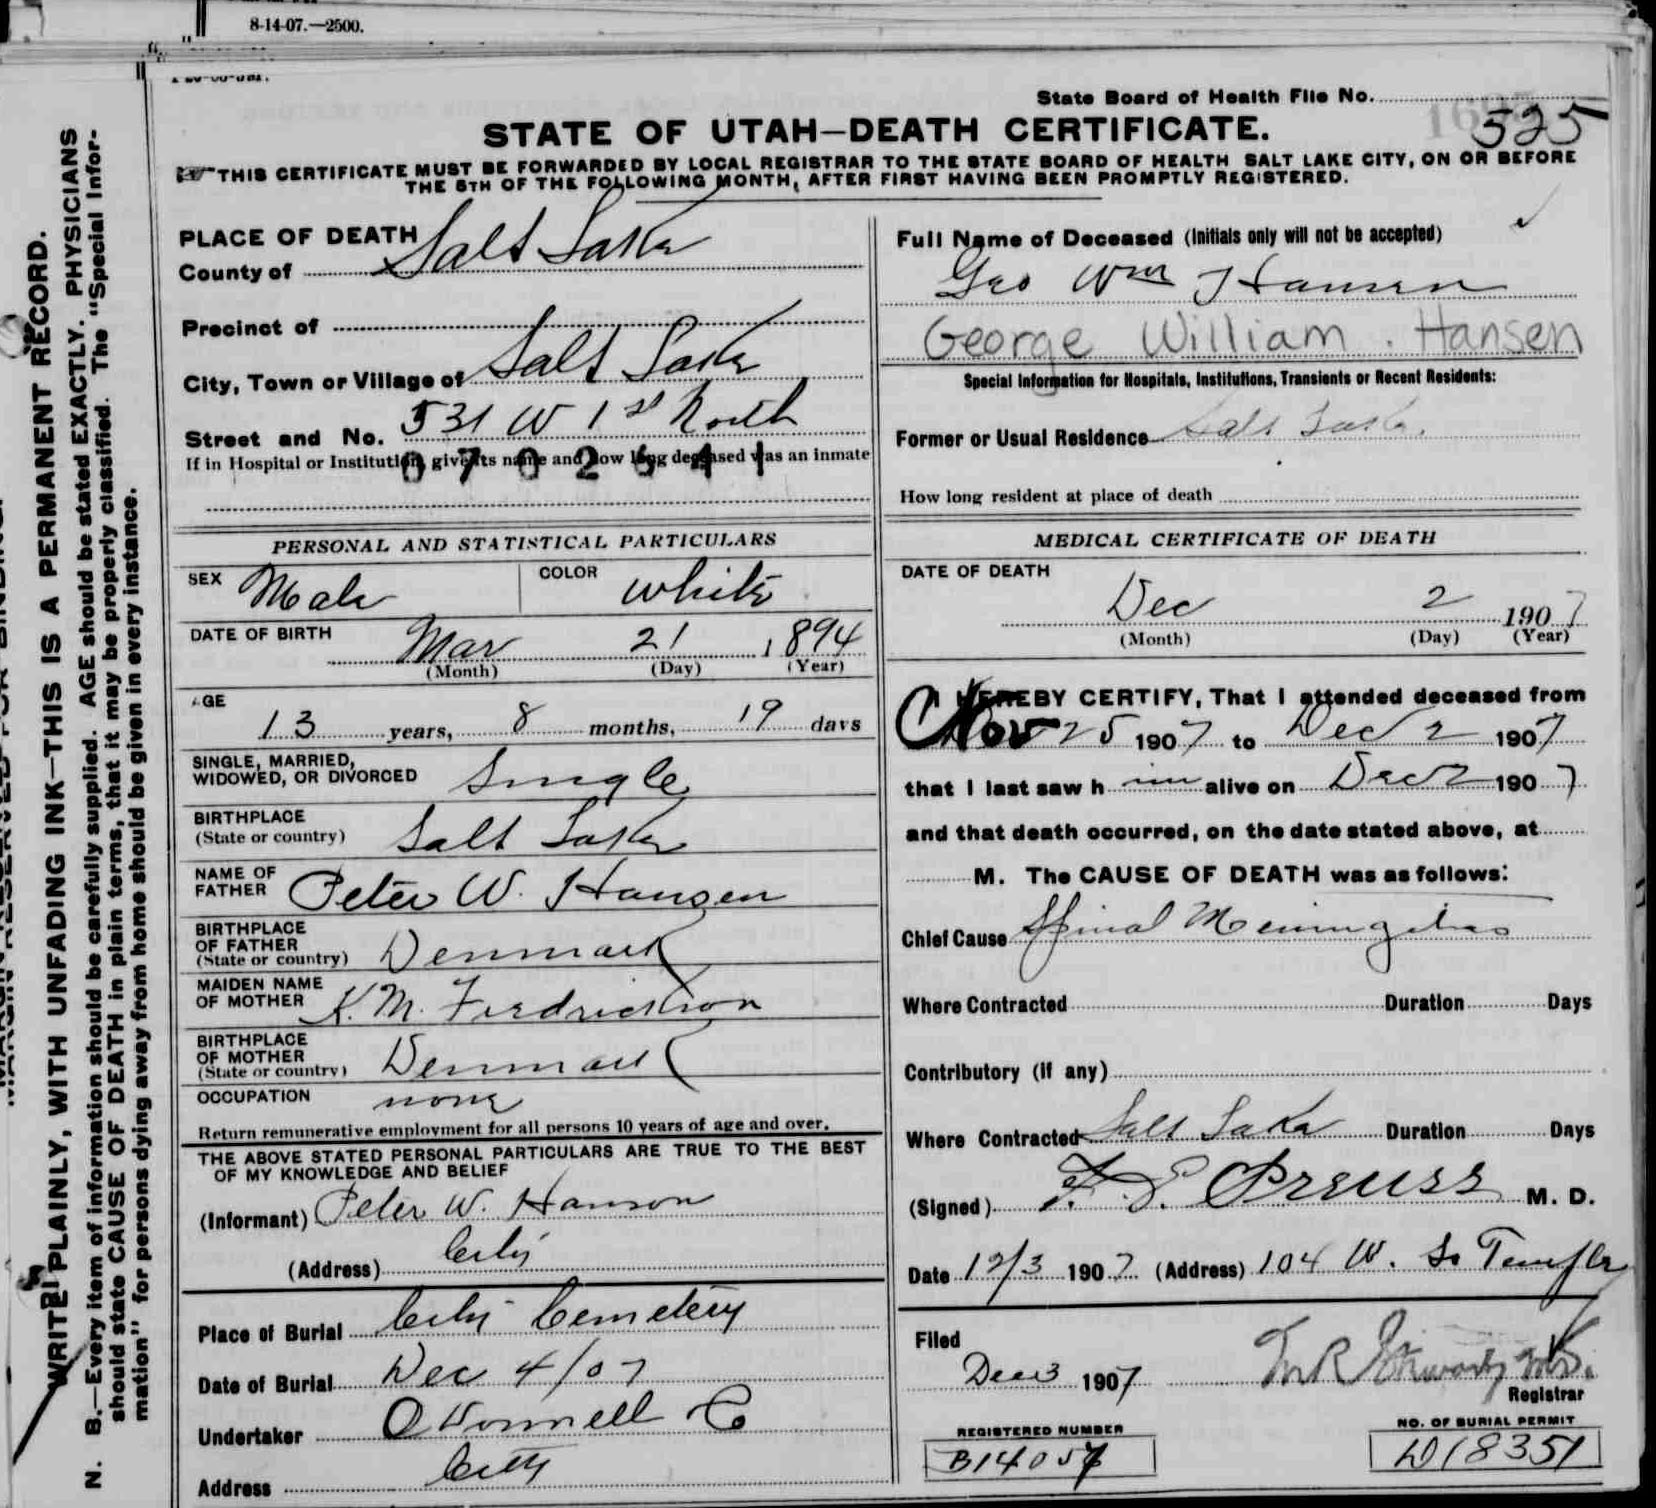 8-14-07.—2500.
State Board of Health File No. 525
STATE OF UTAH—DEATH CERTIFICATE.
THIS CERTIFICATE MUST BE FORWARDED BY LOCAL REGISTRAR TO THE STATE BOARD OF HEALTH SALT LAKE CITY, ON OR BEFORE
THE 5TH OF THE FOLLOWING MONTH, AFTER FIRST HAVING BEEN PROMPTLY REGISTERED.
PLACE OF DEATH
County of Salt Lake
Precinct of
City, Town or Village of Salt Lake
Street and No. 531 W 1st North
If in Hospital or Institution, give its name and how long deceased was an inmate
0702641
PERSONAL AND STATISTICAL PARTICULARS
SEX Male COLOR White
DATE OF BIRTH Mar 21 1894
(Month) (Day) (Year)
AGE
13 years, 8 months, 19 days
SINGLE, MARRIED,
WIDOWED, OR DIVORCED Single
BIRTHPLACE
(State or country) Salt Lake
NAME OF
FATHER Peter W. Hansen
BIRTHPLACE
OF FATHER
(State or country) Denmark
MAIDEN NAME
OF MOTHER K. M. Fredrickson
BIRTHPLACE
OF MOTHER
(State or country) Denmark
OCCUPATION none
Return remunerative employment for all persons 10 years of age and over.
THE ABOVE STATED PERSONAL PARTICULARS ARE TRUE TO THE BEST
OF MY KNOWLEDGE AND BELIEF
(Informant) Peter W. Hanson
(Address) City
Place of Burial City Cemetery
Date of Burial Dec 4/07
Undertaker O'Donnell Co
Address City
Full Name of Deceased (Initials only will not be accepted)
Geo Wm Hansen
George William. Hansen
Special Information for Hospitals, Institutions, Transients or Recent Residents:
Former or Usual Residence Salt Lake.
How long resident at place of death
MEDICAL CERTIFICATE OF DEATH
DATE OF DEATH
Dec 2 1907
(Month) (Day) (Year)
I HEREBY CERTIFY, That I attended deceased from
Nov 25 1907 to Dec 2 1907
that I last saw h im alive on Dec 2 1907
and that death occurred, on the date stated above, at
M. The CAUSE OF DEATH was as follows:
Chief Cause Spinal Meningitis
Where Contracted Duration Days
Contributory (if any)
Where Contracted Salt Lake Duration Days
(Signed) F. E. Preuss M. D.
Date 12/3 1907 (Address) 104 W. So Temple
Filed
Dec 3 1907
Registrar
REGISTERED NUMBER
B14057
NO. OF BURIAL PERMIT
D18351
WRITE PLAINLY, WITH UNFADING INK—THIS IS A PERMANENT RECORD.
N. B.—Every item of information should be carefully supplied. AGE should be stated EXACTLY. PHYSICIANS
should state CAUSE OF DEATH in plain terms, that it may be properly classified. The "Special Infor-
mation" for persons dying away from home should be given in every instance.